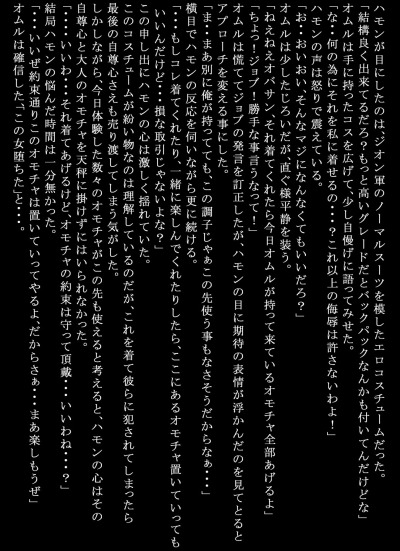 ハモンが目にしたのは、ジオン軍のノーマルスーツを模したエロコスチュームだった。
「結構良く出来てるだろ？もっと高いグレードだとバックパックなんかも付いてんだけどな」
オムルは手に持ったコスを広げて、少し自慢げに語ってみせた。
「な・・何の為にそれを私に着せるの・・・？これ以上の侮辱は許さないわよ！」
ハモンの声は怒りで震えている。
「お・・おいおい、そんなマジになんなくてもいいだろ？」
オムルは少したじろいだが、直ぐ様平静を装う。
「ねえねえオバサン、それ着てくれたら今日オムルが持って来ているオモチャ全部あげるよ」
「ちょっ！ジョブ！勝手な事言うなって！」
オムルは慌ててジョブの発言を訂正したが、ハモンの目に期待の表情が浮かんだのを見てとると
アプローチを変える事にした。
「ま・・まあ別に俺が持ってても、この調子じゃぁこの先使う事もなさそうだからなぁ・・・」
横目でハモンの反応を伺いながら更に続ける。
「・・・もしコレ着てくれたり、一緒に楽しんでくれたりしたら、ここにあるオモチャ置いていっても
いいんだけど・・・損な取引じゃないよな？」
この申し出にハモンの心は激しく揺れていた。
このコスチュームが紛い物なのは理解しているのだが、これを着て彼らに犯されてしまったら
最後の自尊心さえも売り渡してしまう気がした。
しかしながら、今日体験した数々のオモチャがこの先も使えると考えると、ハモンの心はその
自尊心と大人のオモチャを天秤に掛けずにはいられなかった。
「・・・いいわ・・・それ着てあげるけど、オモチャの約束は守って頂戴・・・いいわね・・・？」
結局ハモンの悩んだ時間は一分無かった。
「・・・いいぜ約束通りこのオモチャは置いていってやるよ、だからさぁ・・・まあ楽しもうぜ」
オムルは確信した、「この女堕ちた」と・・・。